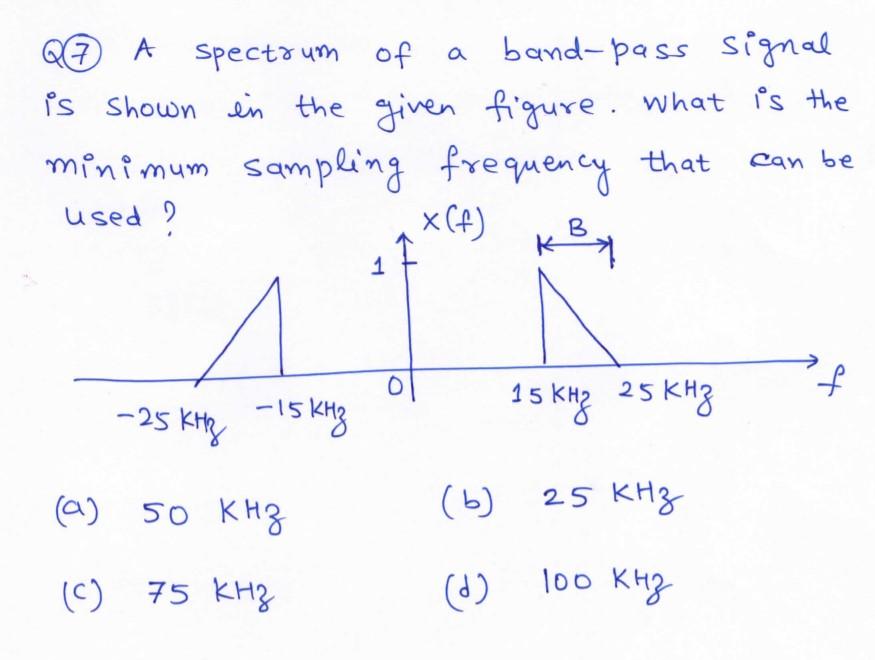 Q7 A spectrum of a band-pass signal
is shown in the given figure. What is the
minimum sampling frequency that can be
used ?
X(f)
B
1
0
f
-25 KHz -15 KHz 15 KHz 25 KHz
(a) 50 KHz (b) 25 KHz
(c) 75 KHz (d) 100 KHz